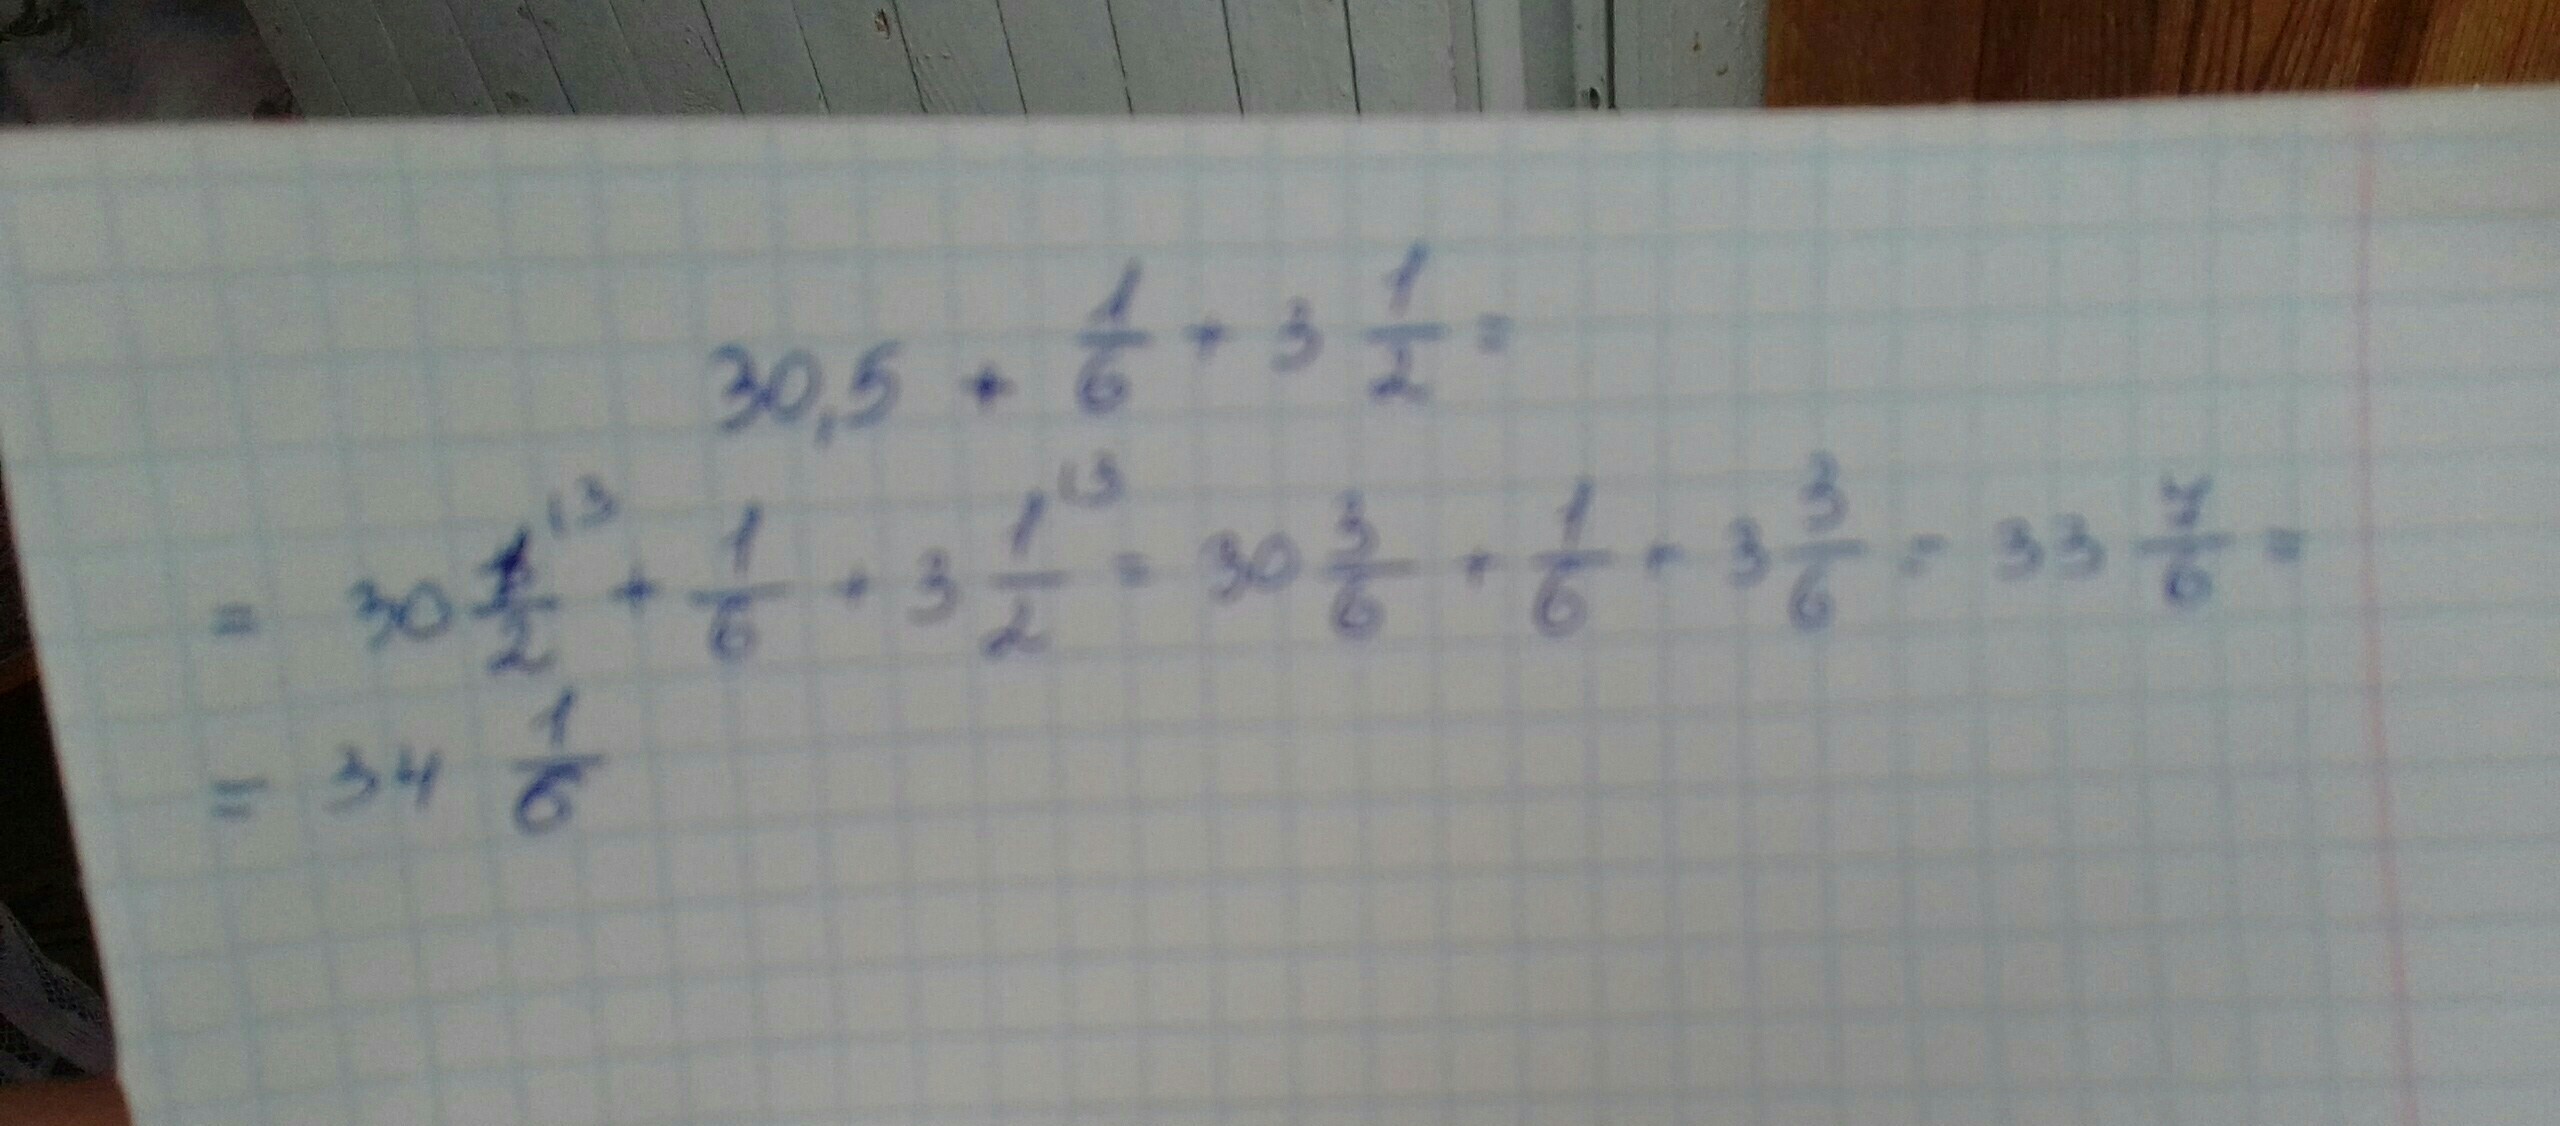 30,5 + 1/6 + 3 1/2 =
= 30 1/2 \3 + 1/6 + 3 1/2 \3 = 30 3/6 + 1/6 + 3 3/6 = 33 7/6 =
= 34 1/6